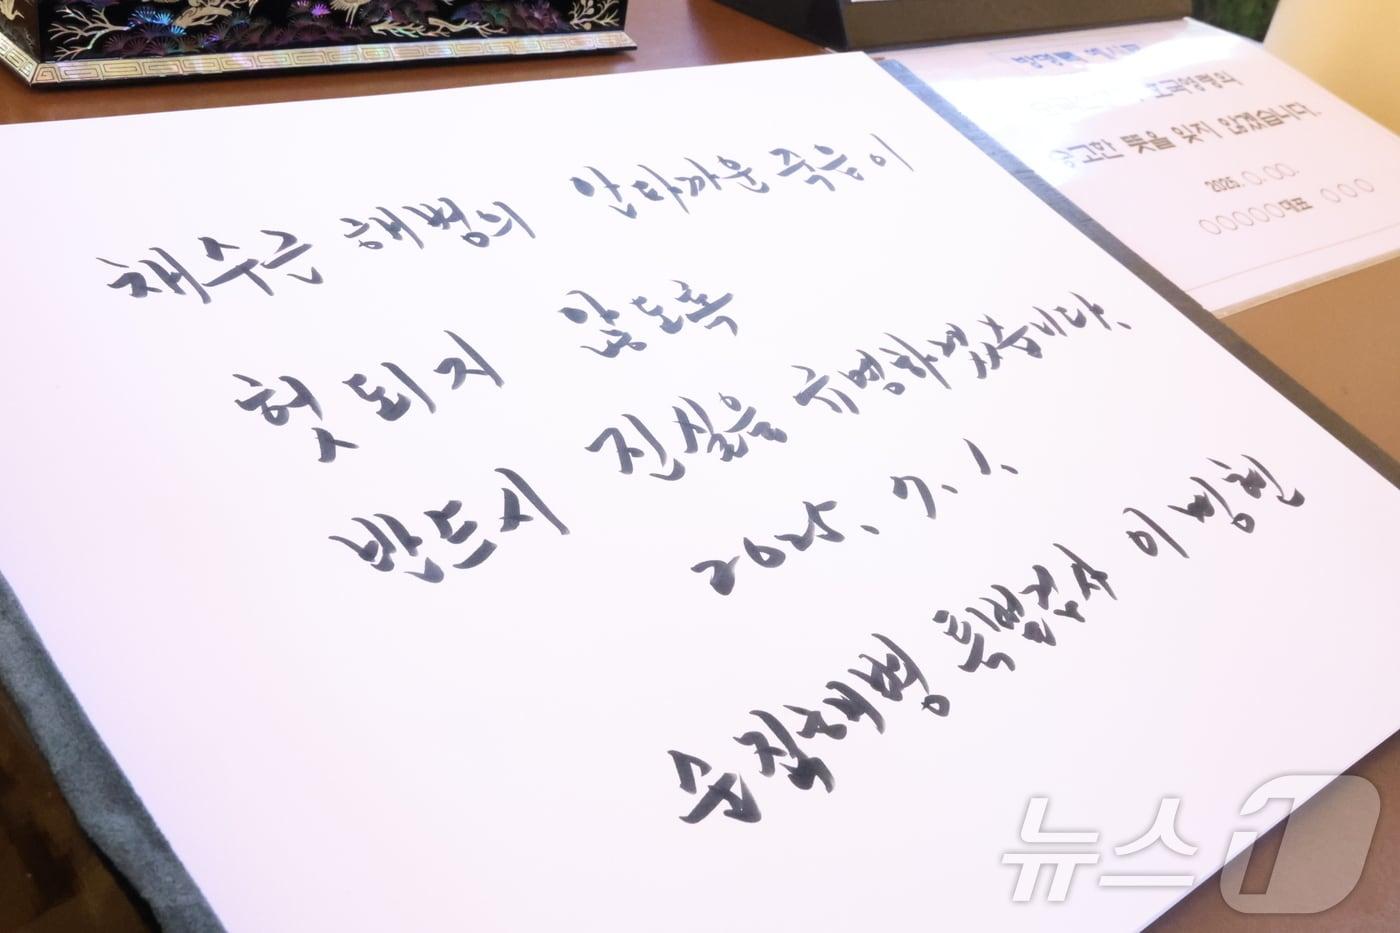 채수근 해병의 안타까운 죽음이
헛되지 않도록
반드시 진실을 규명하겠습니다.
2025. 7. 1.
순직해병 특별검사 이명현
방명록 예시문
호국영령의
숭고한 뜻을 잊지 않겠습니다.
2025. ○. ○○.
○○○○○대표 ○○○
뉴스1